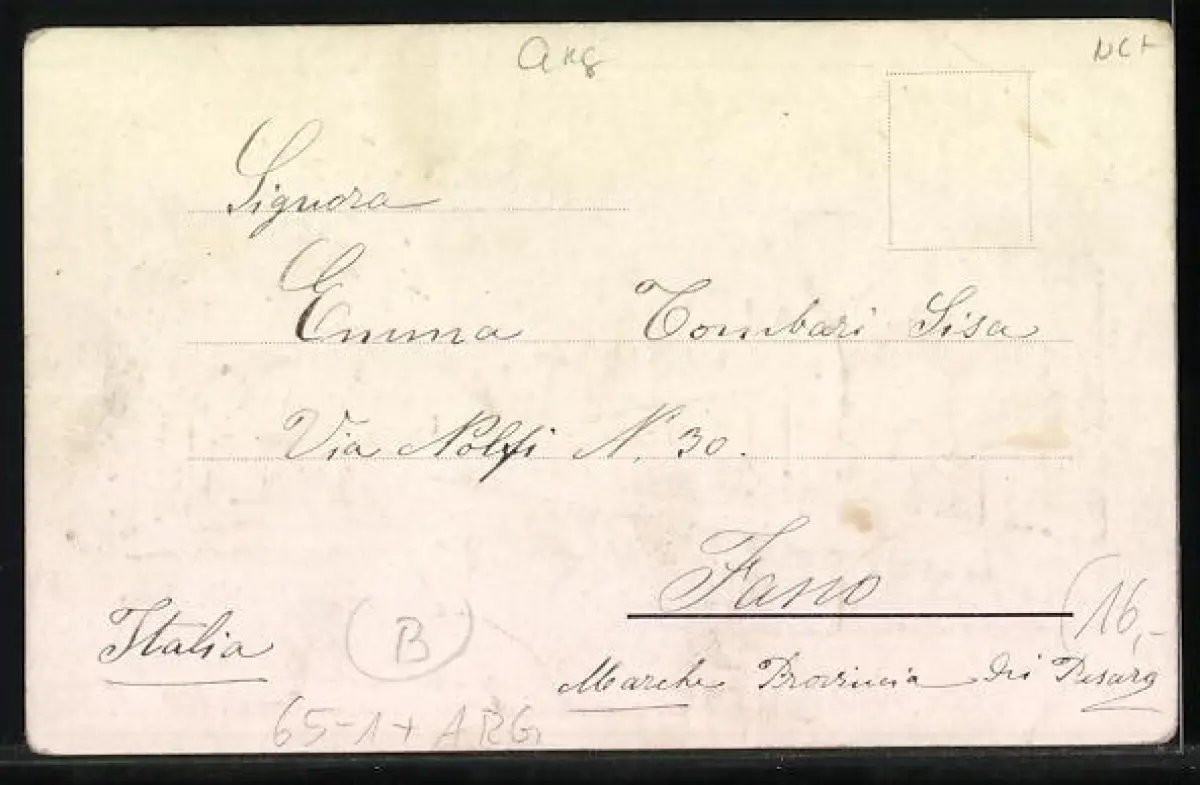 Arg
NCH
Signora
Emma Tombari Sisa
Via Nolfi N. 30.
Fano
16,-
Italia
B
Marche Provincia di Pesaro
65-1+ ARG